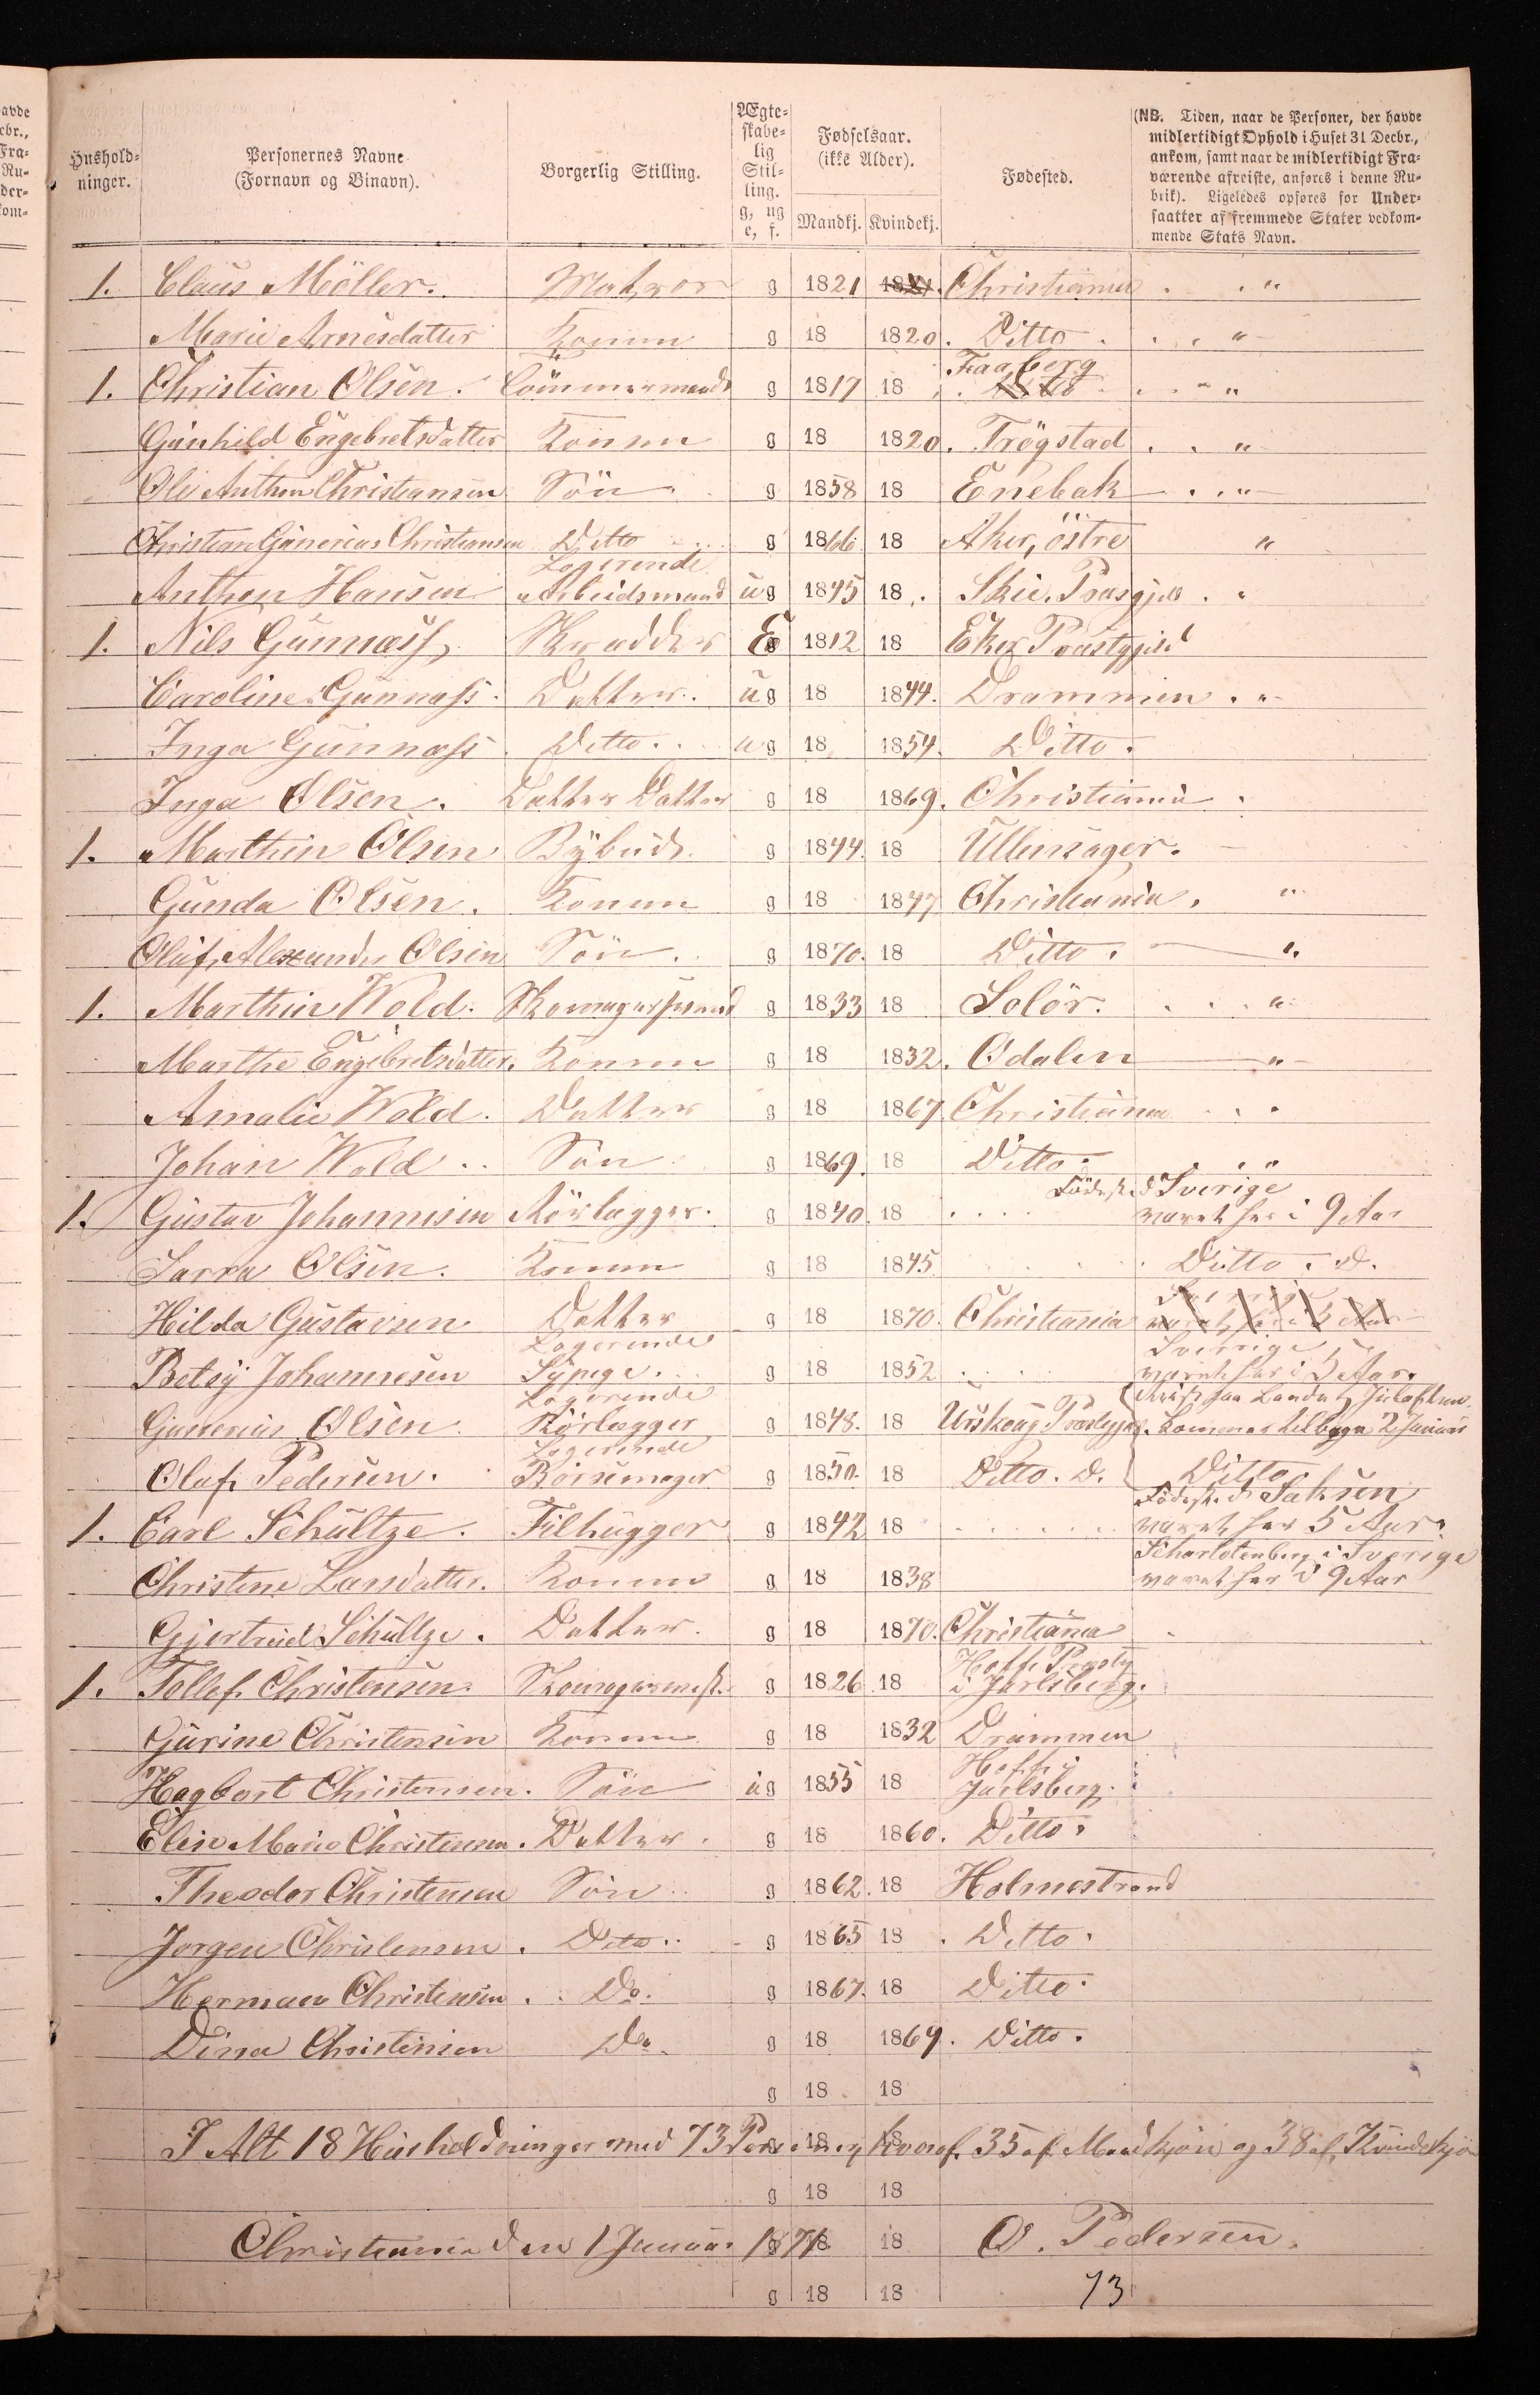 Hushold-
ninger.
Personernes Navne
(Fornavn og Binavn).
Borgerlig Stilling.
Ægte-
skabe-
lig
Stil-
ling.
g, ug
e, f.
Fødselsaar.
(ikke Alder).
Mandkj. Kvindekj.
Fødested.
(NB. Tiden, naar de Personer, der havde
midlertidigt Ophold i Huset 31 Decbr.,
ankom, samt naar de midlertidigt Fra-
værende afreiste, anføres i denne Ru-
brik). Ligeledes opføres for Under-
saatter af fremmede Stater vedkom-
mende Stats Navn.
1. Claus Möller. g 1821 Christiania "
Marie Arnesdatter Konen g 18 1820. Ditto "
1. Christian Olsen. Tömmermand g 1817 18 Faaberg "
Gunhild Engebretsdatter Konen g 18 1820. Trögstad "
Ole Anthon Christiansen Sön g 1858 18 Enebak "
Christian Gunerius Christiansen Ditto g 1866 18 Aker, östre "
Anthon Hansen Logerende Arbeidsmand ug 1845 18 Skie. Præsgjeld "
1. Nils Gunnass, Skrædder E 1812 18 Eker Præstgjeld
Caroline Gunnass. Datter. ug 18 1844. Drammen "
Inga Gunnass. Ditto. ug 18 1854. Ditto.
Inga Olsen. Datter Datter g 18 1869. Christiania
1. Marthin Olsen Bybud. g 1844. 18 Ullensager.
Gunda Olsen. Konen g 18 1847 Christiania. "
Oluf Alexander Olsen Sön. g 1870. 18 Ditto. "
1. Marthin Wold. Skomagersvend g 1833 18 Solör. "
Marthe Engebretsdatter. Konen g 18 1832. Odalen "
Amalie Wold. Datter g 18 1867. Christiania
Johan Wold Sön g 1869. 18 Ditto. "
1. Gustav Johannisen Rörlægger. g 1840. 18 Födested Sverige været her i 9 Aar
Sarra Olsen. Konen g 18 1845 Ditto. D.
Hilda Gustavsen Datter g 18 1870. Christiania
Betsÿ Johannesen Logerende Sÿpige. g 18 1852 Sverrige været her i 5 Aar.
Gunerius Olsen Logerende Rörlægger g 1848. 18 Urskoug Præstegjeld. Reist paa Landet Juleaften. Kommer tilbage 2 Januar
Oluf Pedersen. Logerende Börsemager g 1850. 18 Ditto. D. Ditto
1. Carl Schultze. Filhugger g 1842 18 Födested Saksen været her 5 Aar.
Christine Larsdatter. Konen g 18 1838 Scharlotenberg i Sverige været her i 9 Aar
Gjertrud Schultze. Datter. g 18 1870. Christiania
1. Tollef Christensen Skomagermest. g 1826 18 Hoff Præstg. i Jarlsberg.
Gurine Christensen Konen g 18 1832 Drammen
Hagbart Christensen. Sön ug 1855 18 Hoff i Jarlsberg.
Elise Marie Christensen. Datter. g 18 1860. Ditto.
Theodor Christensen Sön g 1862. 18 Holmestrand
Jorgen Christensen. Ditto. g 1865 18 Ditto.
Herman Christensen. Do. g 1867. 18 Ditto.
Dina Christensen Do. g 18 1869. Ditto.
g 18 18
I Alt 18 Husholdninger med 73 Personer hvoraf 35 af Mandkjön og 38 af Kvindekjön
g 18 18
Christiania den 1 Januar 1871. O. Pedersen.
g 18 18 73